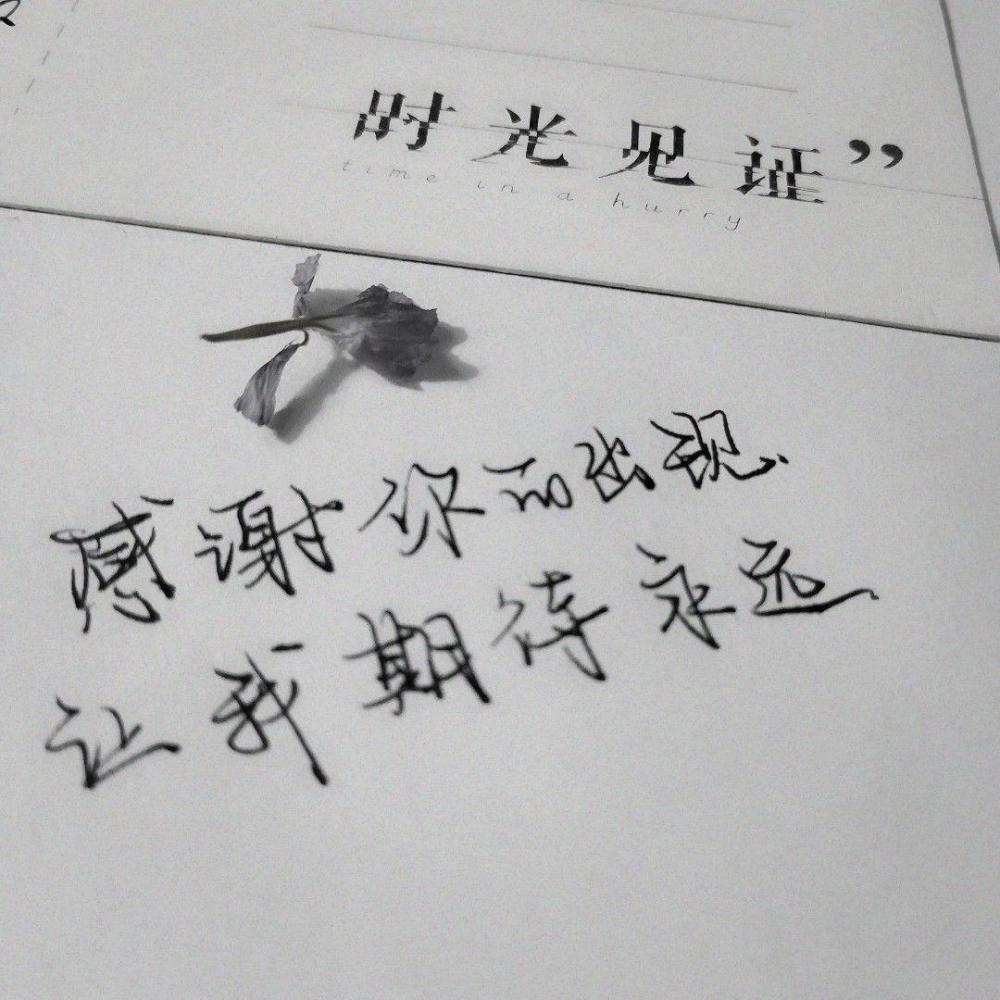 时光见证”
time in a hurry
感谢你的出现
让我期待永远